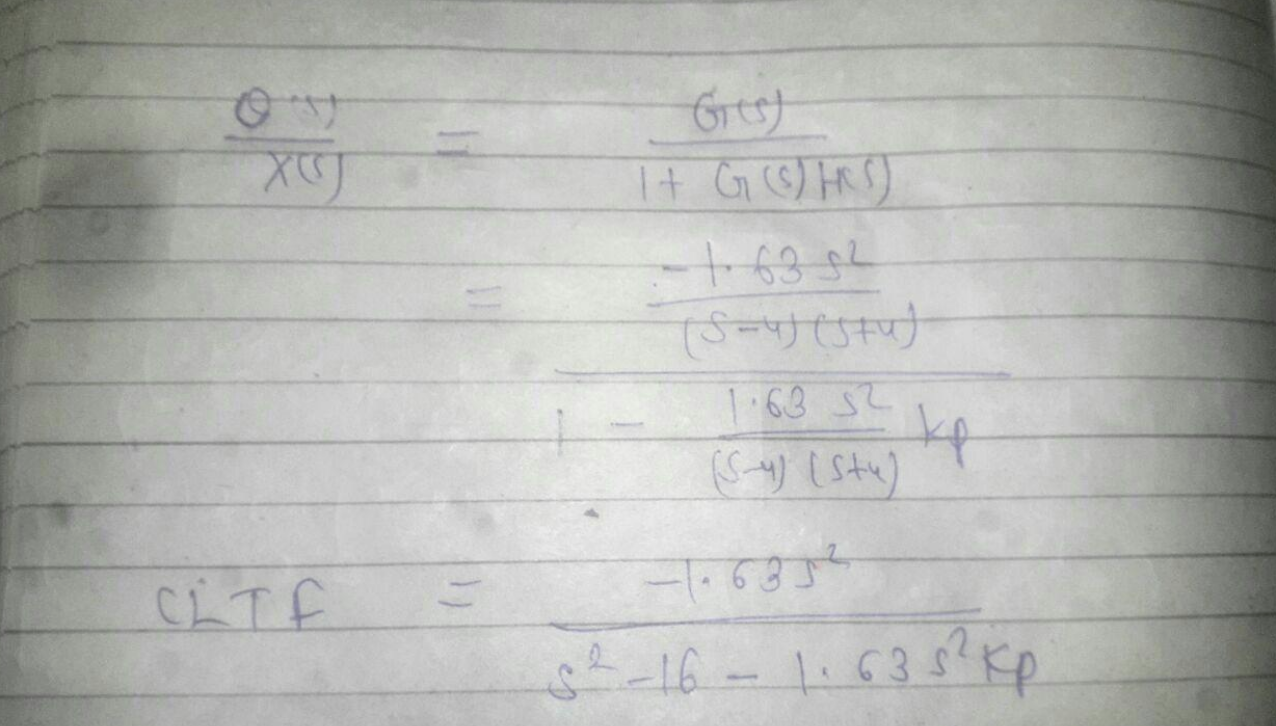 θ(s) / X(s) = G(s) / 1 + G(s) H(s)
= -1.63 s² / (s-4) (s+4) / 1 - 1.63 s² / (s-4) (s+4) kp
CLTF = -1.63 s² / s² - 16 - 1.63 s² Kp